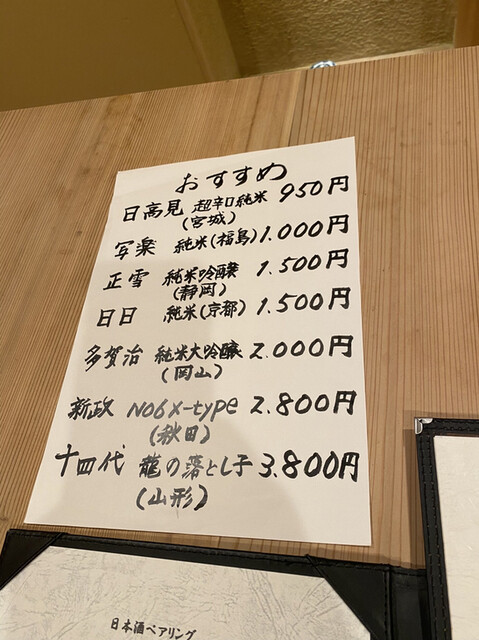 おすすめ
日高見 超辛口純米 950円
(宮城)
写楽 純米(福島) 1.000円
正雪 純米吟醸 1.500円
(静岡)
日日 純米(京都) 1.500円
多賀治 純米大吟醸 2.000円
(岡山)
新政 No6 X-type 2.800円
(秋田)
十四代 龍の落とし子 3.800円
(山形)
日本酒ペアリング